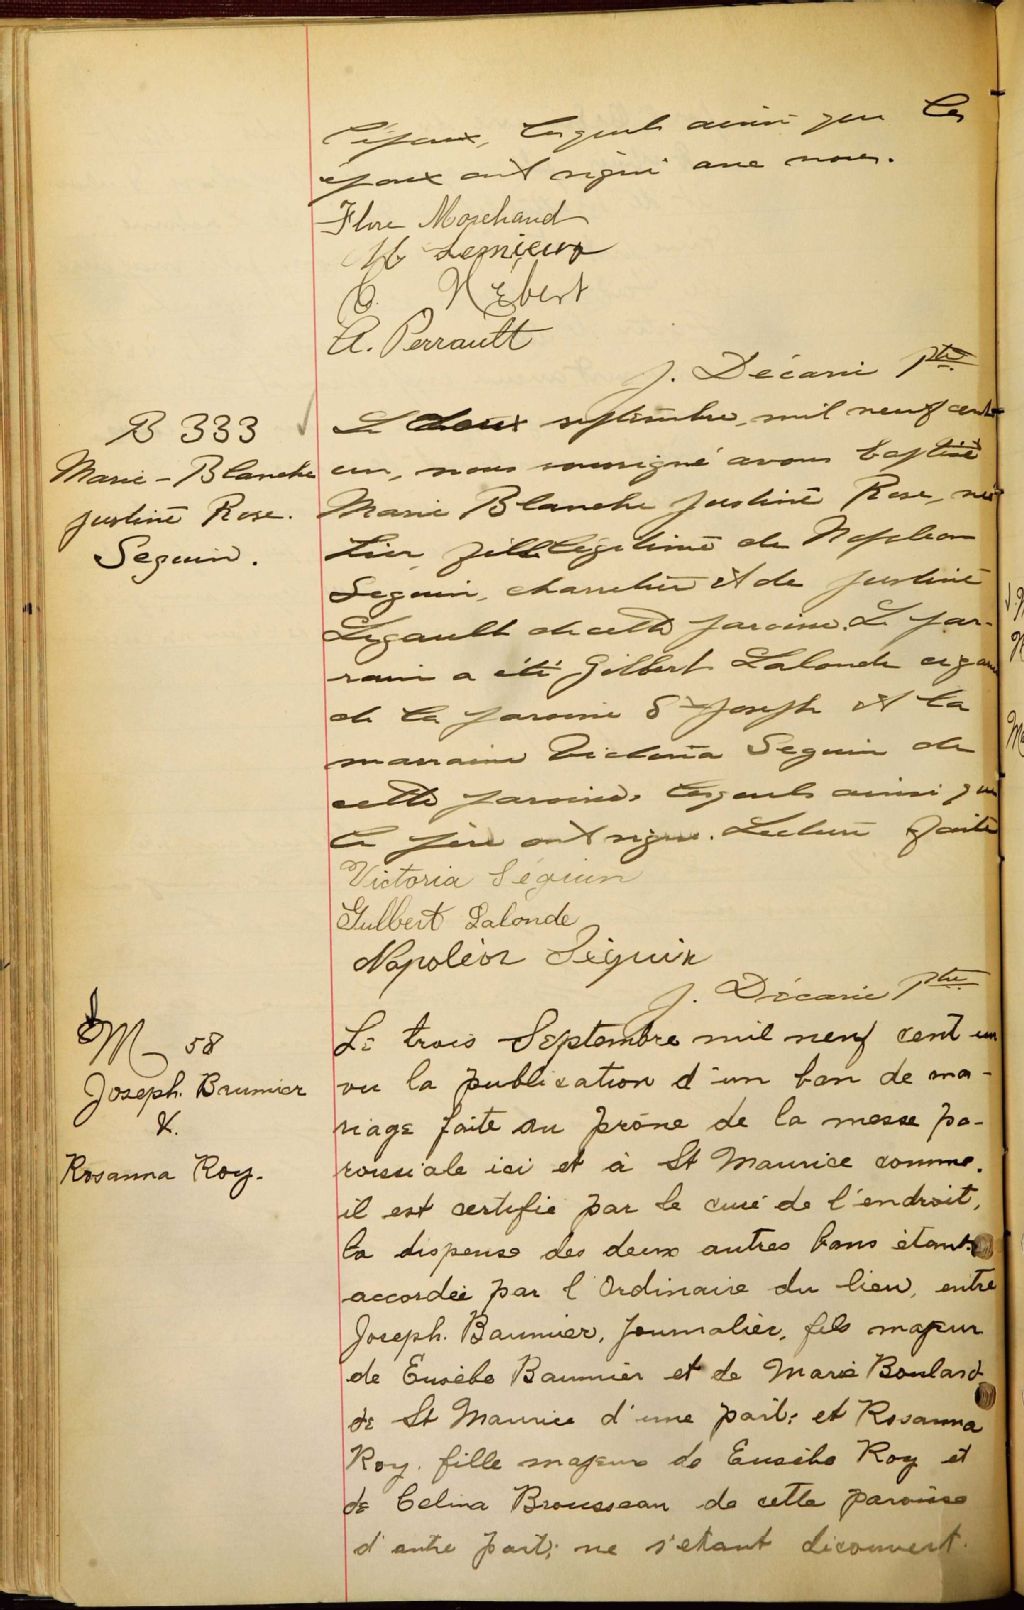 l'époux, lesquels ainsi que les
époux ont signé avec nous.
Flore Marchand
Lemieux
C. Hébert
A. Perrault
J. Décarie Ptre
B 333
Marie-Blanche
Justine Rose.
Seguin.
Le deux septembre, mil neuf cent
un, nous soussigné avons baptisé
Marie Blanche Justine Rose, née
hier, fille légitime de Napoléon
Seguin, charretier et de Justine
Legault de cette paroisse. Le par-
rain a été Gilbert Lalonde
de la paroisse St Joseph et la
marraine Victoria Seguin de
cette paroisse, lesquels ainsi que
le père ont signé. Lecture faite
Victoria Séguin
Gulbert Lalonde
Napoléon Séguin
J. Décarie Ptre
M 58
Joseph. Baumier
&.
Rosanna Roy.
Le trois Septembre mil neuf cent un
vu la publication d'un ban de ma-
riage faite au prône de la messe pa-
roissiale ici et à St Maurice comme
il est certifié par le curé de l'endroit,
la dispense des deux autres bans étant
accordée par l'Ordinaire du lieu, entre
Joseph. Baumier, journalier, fils majeur
de Eusèbe Baumier et de Marie Boulard
de St Maurice d'une part; et Rosanna
Roy. fille majeure de Eusèbe Roy et
de Celina Brousseau de cette paroisse
d'autre part; ne s'étant découvert